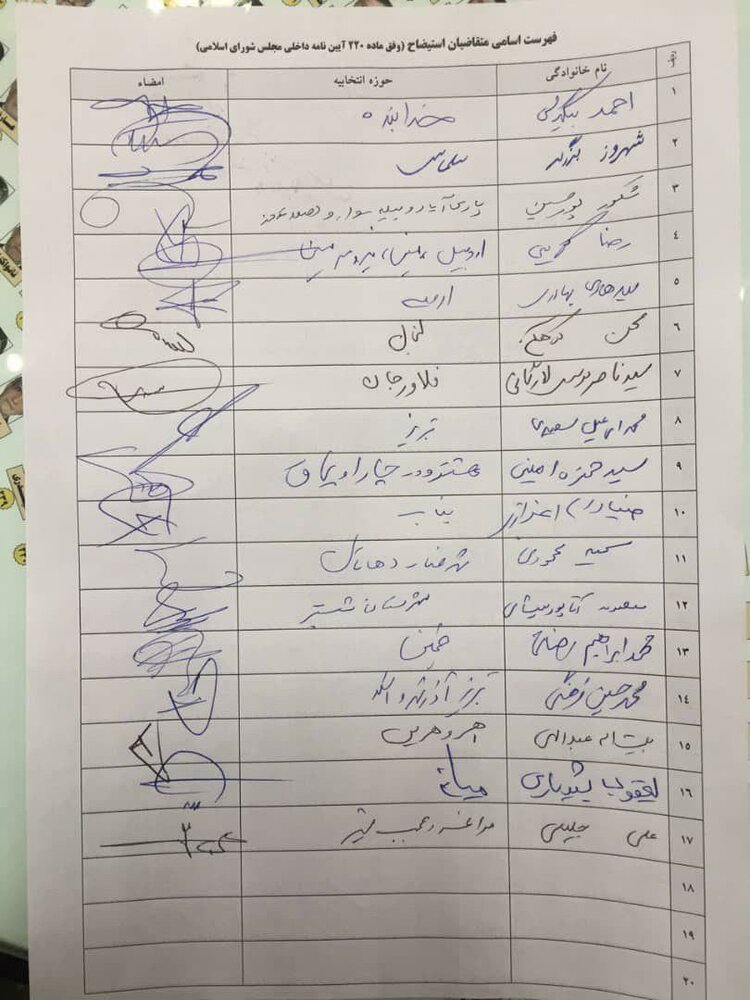 فهرست اسامی متقاضیان استیضاح (وفق ماده ۲۲۰ آیین نامه داخلی مجلس شورای اسلامی)
ردیف نام خانوادگی حوزه انتخابیه امضاء
۱ احمد بیگدلی خدابنده
۲ شهروز برزگر سلماس
۳ شکور پورحسین پارس آباد و بیله سوار و
۴ رضا کریمی اردبیل، نمین، نیر و سرعین
۵ سید هادی بهادری ارومیه
۶ گنبد
۷ سید ناصر موسوی لارگانی فلاورجان
۸ محمد اسماعیل سعیدی تبریز
۹ سید حمزه امینی هشترود و چاراویماق
۱۰ ضیاء اعزازی بناب
۱۱ سمیه محمودی شهرضا و دهاقان
۱۲ معصومه آقاپور علیشاهی شهرستان شبستر
۱۳ محمد ابراهیم رضائی خمین
۱۴ محمد حسین فرهنگی تبریز آذرشهر و اسکو
۱۵ عبدالهی اهر و هریس
۱۶ یعقوب شیویاری میانه
۱۷ علی جلیلی مراغه و عجب شیر
۱۸
۱۹
۲۰